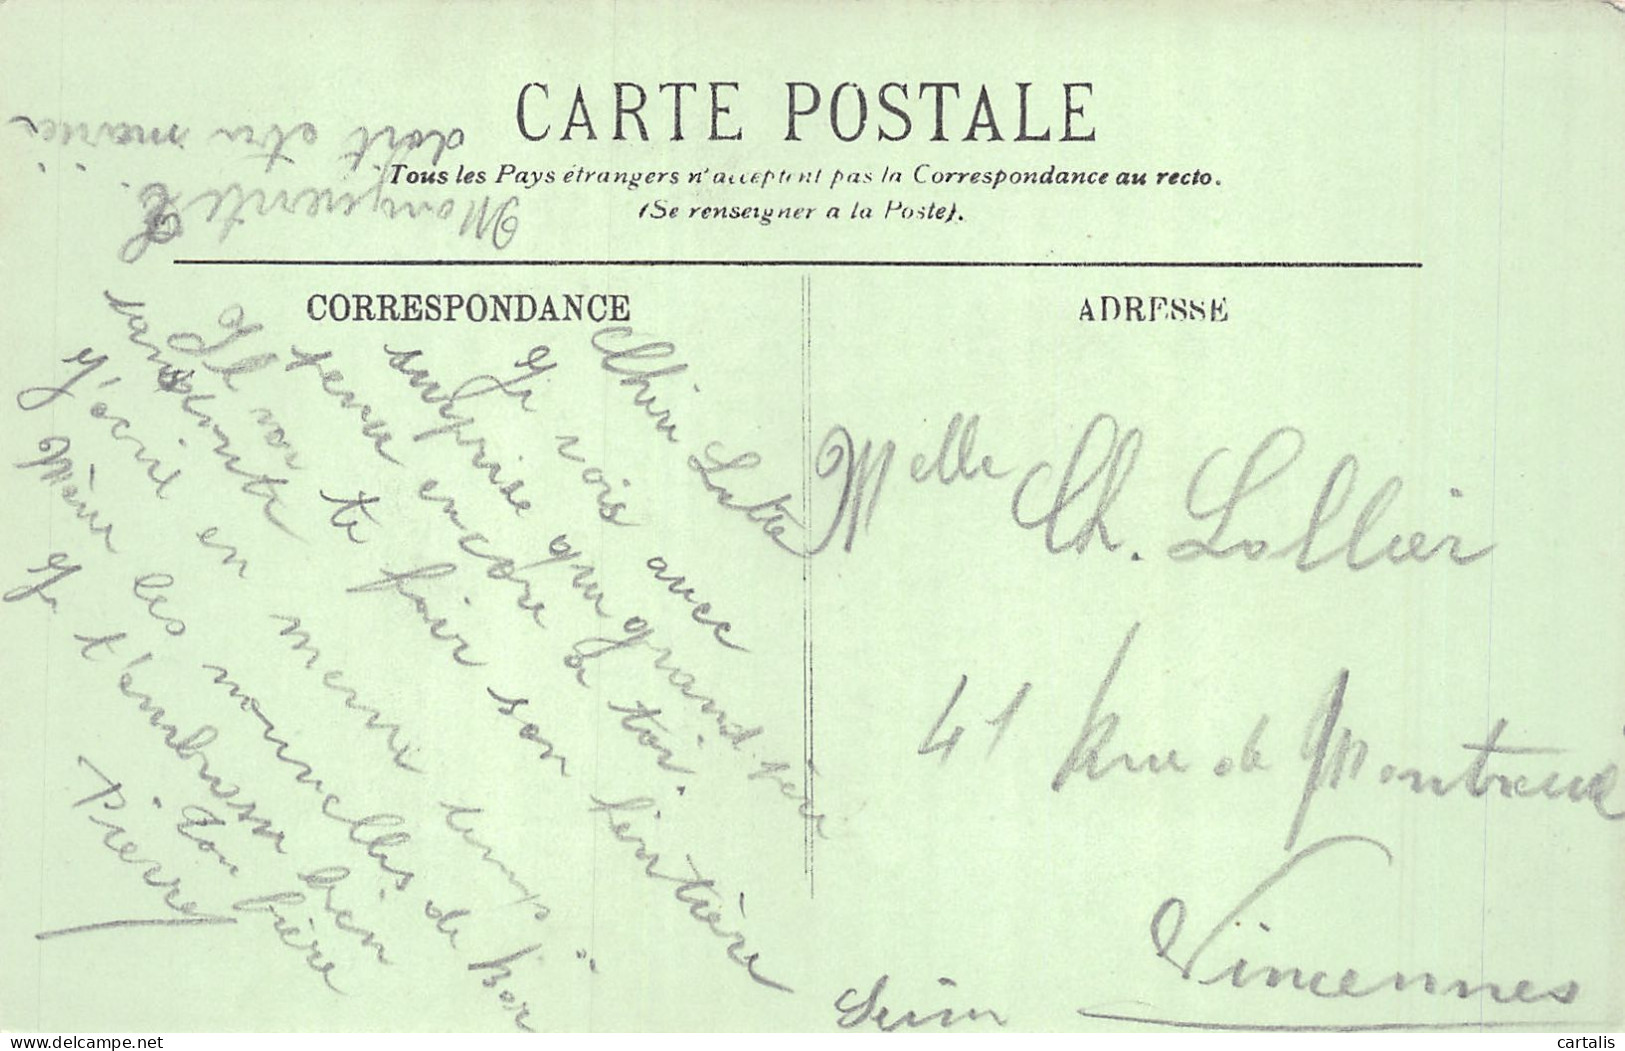 CARTE POSTALE
Tous les Pays étrangers n'acceptent pas la Correspondance au recto.
(Se renseigner a la Poste).
CORRESPONDANCE
ADRESSE
Chère
Je vois avec
surprise que grand-père
pense encore à toi.
Il va te faire son
sans
J'écris en meme temps à
Mère les nouvelles de
Je t'embrasse bien
Ton frère
Pierre
doit etre
Melle Ch. Lollier
41 Rue de Montreuil
Vincennes
Seine
cartalis
delcampe.net